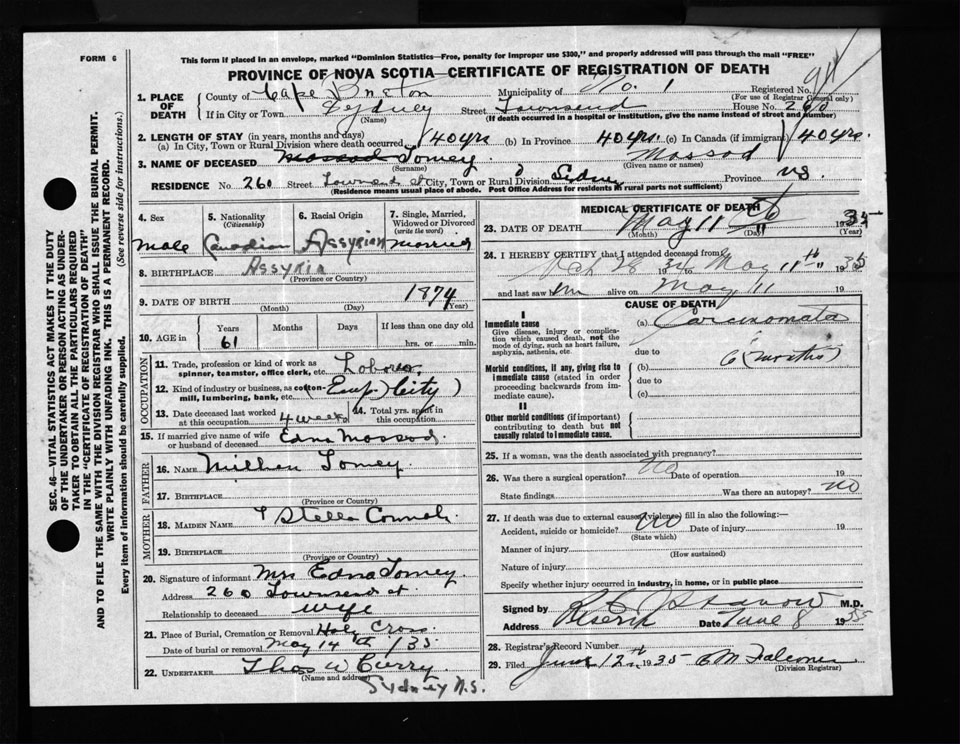 FORM 6
This form if placed in an envelope, marked "Dominion Statistics—Free, penalty for improper use $300," and properly addressed will pass through the mail "FREE"
PROVINCE OF NOVA SCOTIA—CERTIFICATE OF REGISTRATION OF DEATH
1. PLACE OF DEATH
County of Cape Breton Municipality of No. 1 Registered No.
(For use of Registrar General only)
If in City or Town Sydney Street Townsend House No. 260
(Name) (If death occurred in a hospital or institution, give the name instead of street and number)
2. LENGTH OF STAY (in years, months and days)
(a) In City, Town or Rural Division where death occurred 40 yrs (b) In Province 40 yrs. (c) In Canada (if immigrant) 40 yrs.
3. NAME OF DECEASED Mossod Tomey Mossod
(Surname) (Given name or names)
RESIDENCE No. 260 Street Townsend st City, Town or Rural Division Sydney Province NS.
(Residence means usual place of abode. Post Office Address for residents in rural parts not sufficient)
4. Sex
male
5. Nationality
(Citizenship)
Canadian
6. Racial Origin
Assyrian
7. Single, Married, Widowed or Divorced
(write the word)
married
8. BIRTHPLACE Assyria
(Province or Country)
9. DATE OF BIRTH 1874
(Month) (Day) (Year)
10. AGE in
Years Months Days If less than one day old
61 hrs. or min.
OCCUPATION
11. Trade, profession or kind of work as
spinner, teamster, office clerk, etc. Laborer
12. Kind of industry or business, as cotton-
mill, lumbering, bank, etc. (Emp. City)
13. Date deceased last worked
at this occupation 4 weeks
14. Total yrs. spent in
this occupation
15. If married give name of wife
or husband of deceased Edna Mossod.
FATHER
16. NAME Tomey.
17. BIRTHPLACE
(Province or Country)
MOTHER
18. MAIDEN NAME Stella
19. BIRTHPLACE
(Province or Country)
20. Signature of informant Mrs Edna Tomey.
Address 260 Townsend st.
Relationship to deceased wife
21. Place of Burial, Cremation or Removal Holy Cross
Date of burial or removal May 14th /35
22. UNDERTAKER Thos W Curry
(Name and address)
Sydney N.S.
MEDICAL CERTIFICATE OF DEATH
23. DATE OF DEATH May 11 1935
(Month) (Day) (Year)
24. I HEREBY CERTIFY that I attended deceased from
28 1934 to May 11th 1935
and last saw him alive on May 11 19
CAUSE OF DEATH
I
Immediate cause
Give disease, injury or complica-
tion which caused death, not the
mode of dying, such as heart failure,
asphyxia, asthenia, etc.
(a) Carcinomata
due to
Morbid conditions, if any, giving rise to
immediate cause (stated in order
proceeding backwards from im-
mediate cause).
(b) 6 (months)
due to
(c)
II
Other morbid conditions (if important)
contributing to death but not
causally related to immediate cause.
25. If a woman, was the death associated with pregnancy?
26. Was there a surgical operation? No Date of operation 19
State findings Was there an autopsy? NO
27. If death was due to external causes (violence) fill in also the following:—
Accident, suicide or homicide? No Date of injury 19
(State which)
Manner of injury
(How sustained)
Nature of injury
Specify whether injury occurred in industry, in home, or in public place
Signed by M.D.
Address Reserve Date June 8 1935
28. Registrar's Record Number
29. Filed June 12th 1935
(Division Registrar)
SEC. 46—VITAL STATISTICS ACT MAKES IT THE DUTY
OF THE UNDERTAKER OR PERSON ACTING AS UNDER-
TAKER TO OBTAIN ALL THE PARTICULARS REQUIRED
IN THE "CERTIFICATE OF REGISTRATION OF DEATH"
AND TO FILE THE SAME WITH THE DIVISION REGISTRAR WHO SHALL ISSUE THE BURIAL PERMIT.
WRITE PLAINLY WITH UNFADING INK. THIS IS A PERMANENT RECORD.
Every item of information should be carefully supplied. (See reverse side for instructions.)